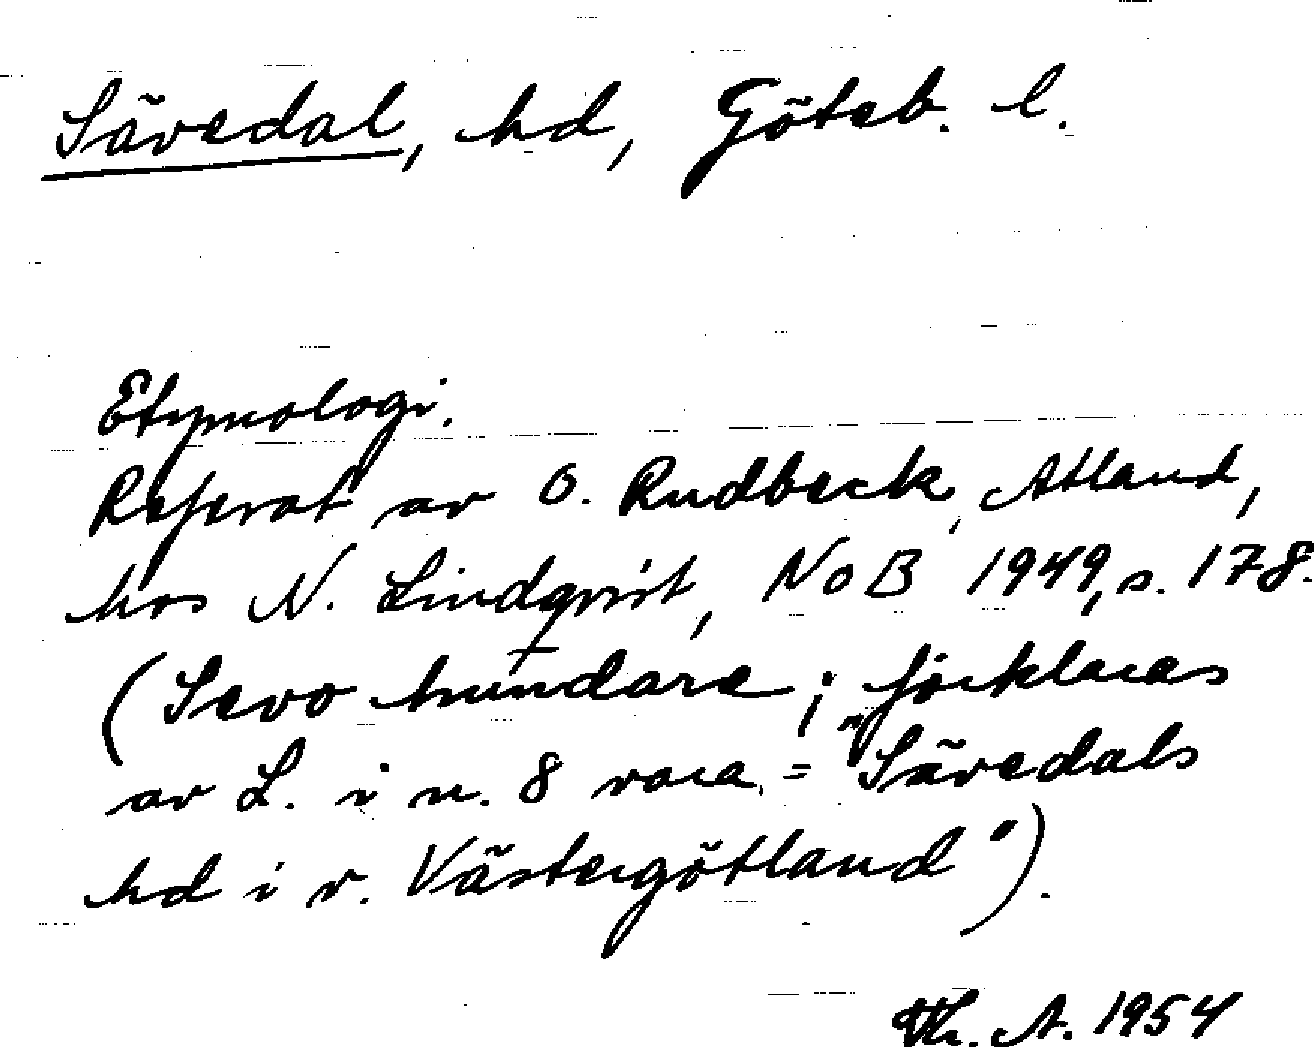 Sävedal, hd, Göteb. l.
Etymologi.
Referat av O. Rudbeck, Atland,
hos N. Lindqvist, NoB 1949, s. 178.
(Sevo hundare; förklaras
av L. i n. 8 vara = "Sävedals
hd i v. Västergötland").
Th. A. 1954